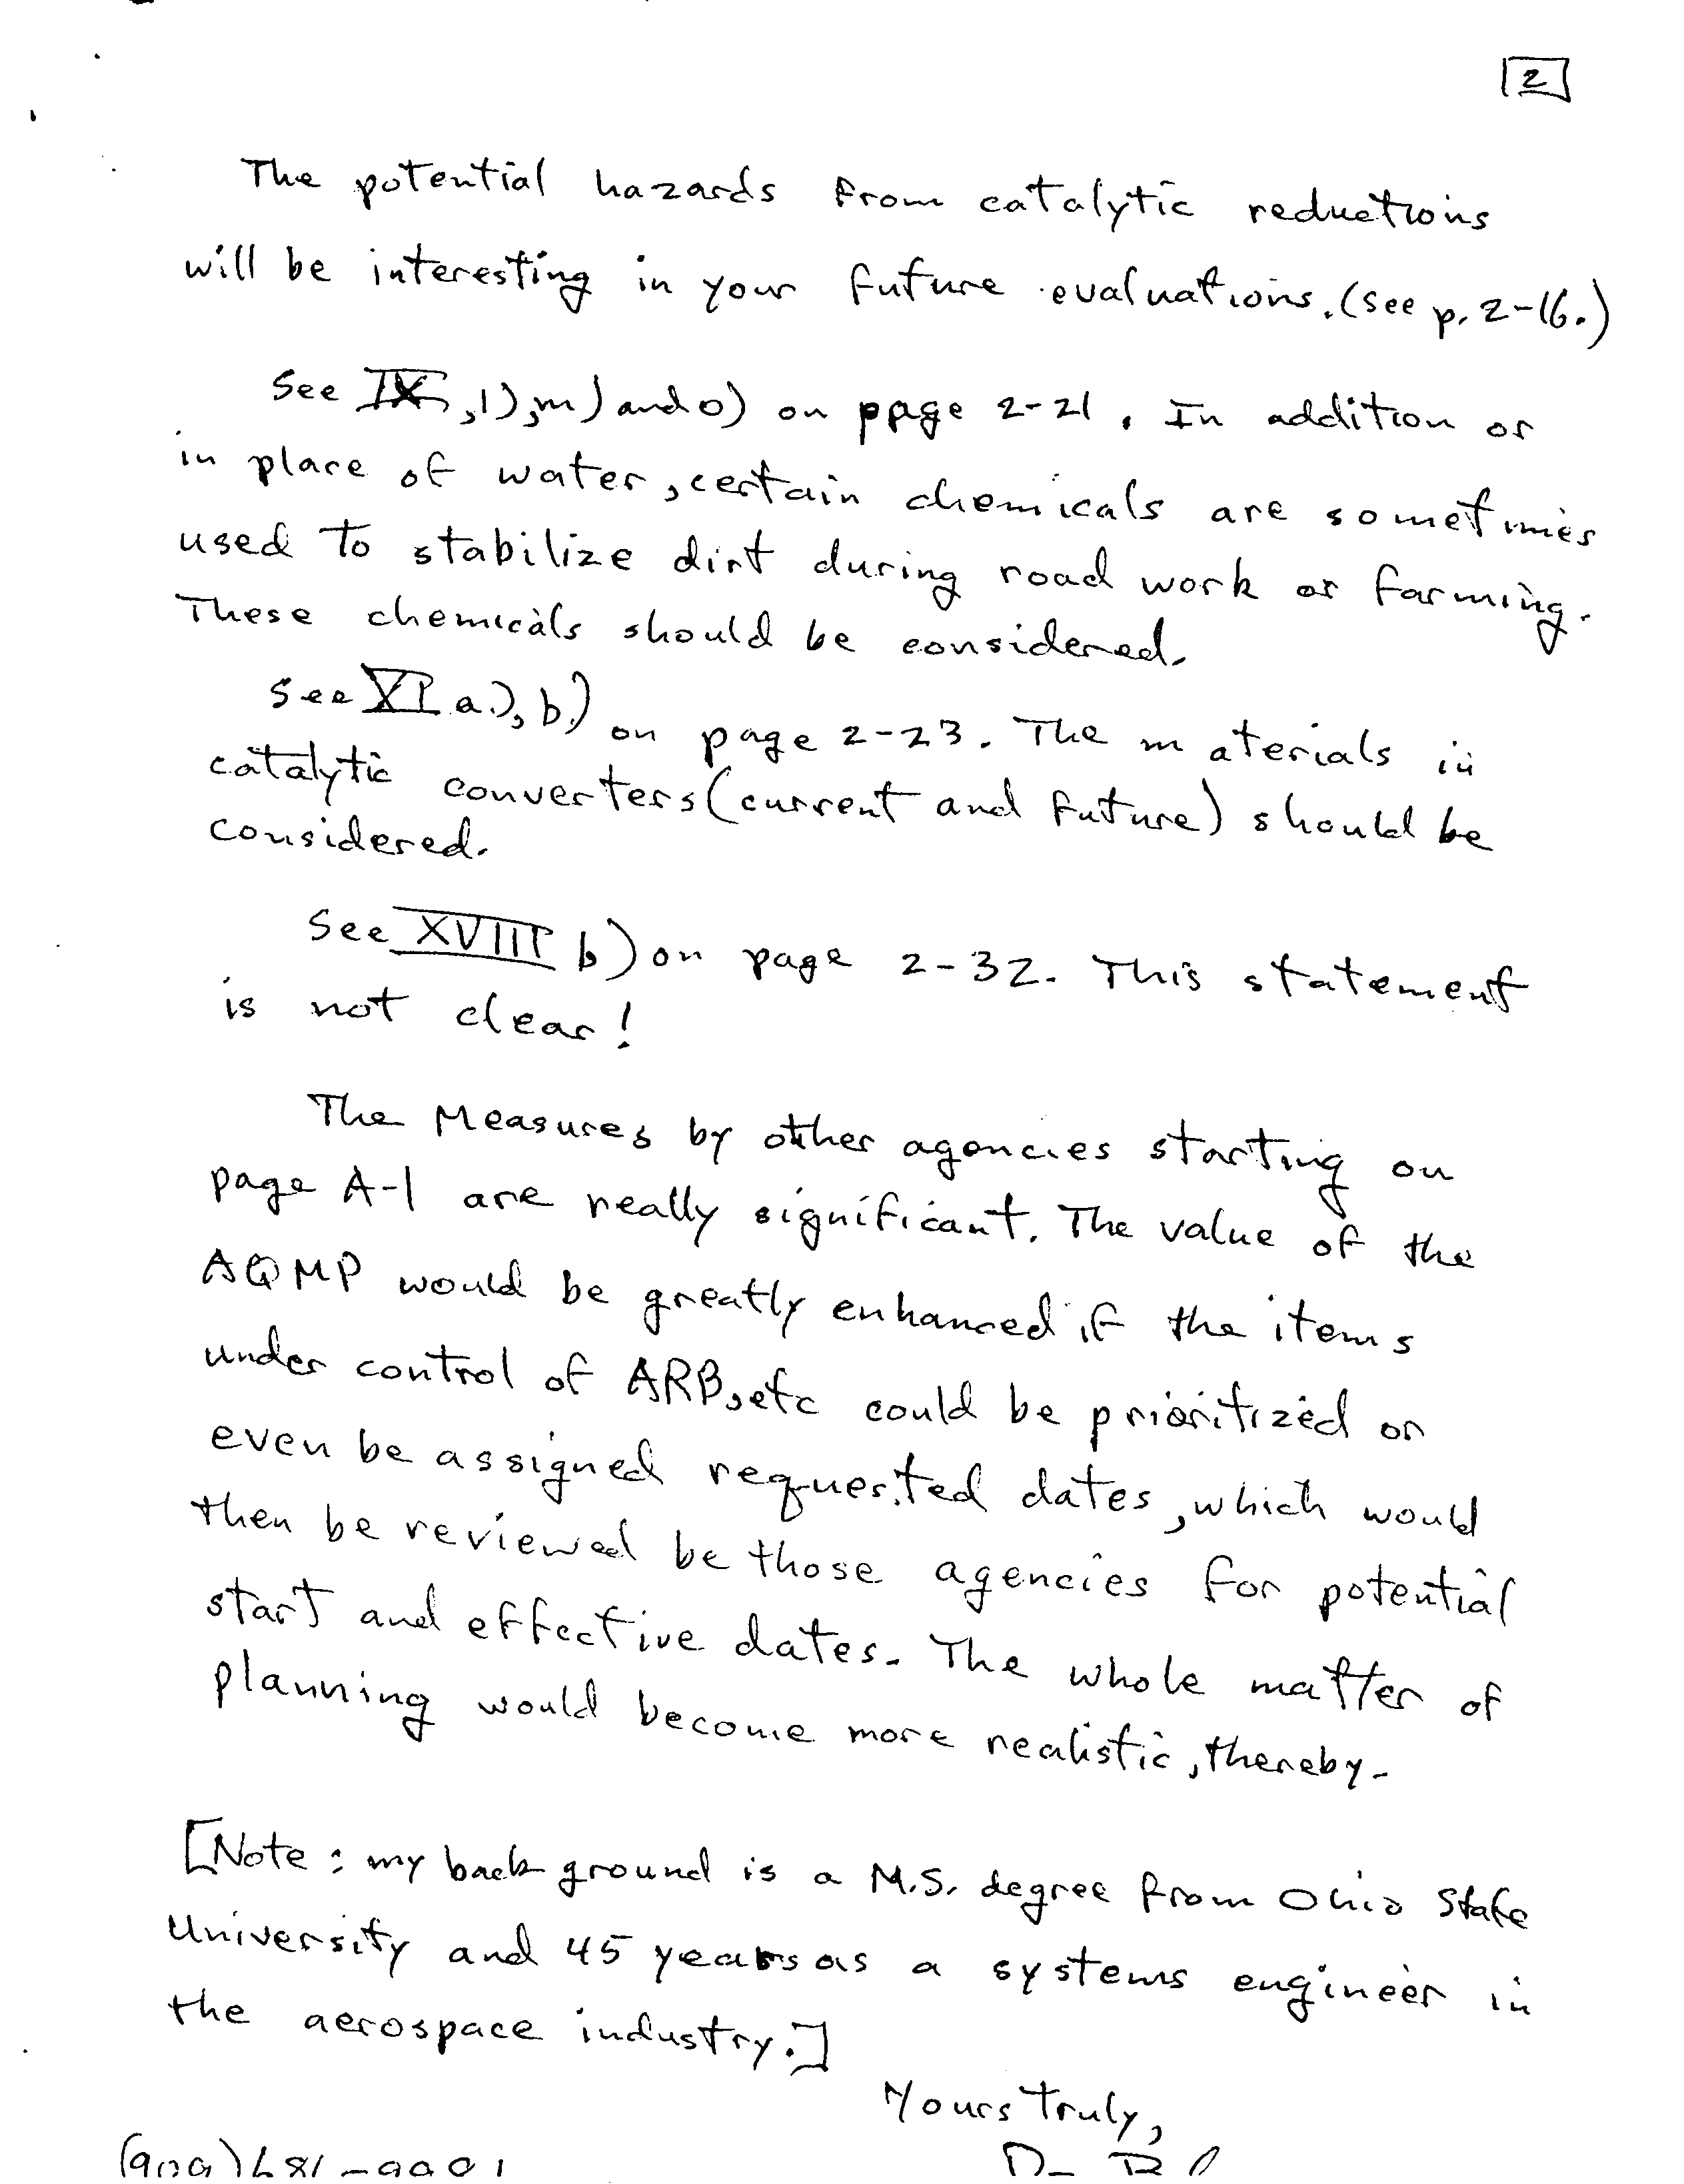 2
The potential hazards from catalytic reductions
will be interesting in your future evaluations. (See p. 2-16.)
See IX, l), m) and o) on ppage 2-21. In addition or
in place of water, certain chemicals are sometimes
used to stabilize dirt during road work or farming.
These chemicals should be considered.
See XI a.), b.) on page 2-23. The materials in
catalytic converters (current and future) should be
considered.
See XVIII b) on page 2-32. This statement
is not clear!
The Measures by other agencies starting on
page A-1 are really significant. The value of the
AQMP would be greatly enhanced if the items
under control of ARB, etc could be prioritized or
even be assigned requested dates, which would
then be reviewed be those agencies for potential
start and effective dates. The whole matter of
planning would become more realistic, thereby.
[Note: my background is a M.S. degree from Ohio State
University and 45 years as a systems engineer in
the aerospace industry.]
Yours Truly,